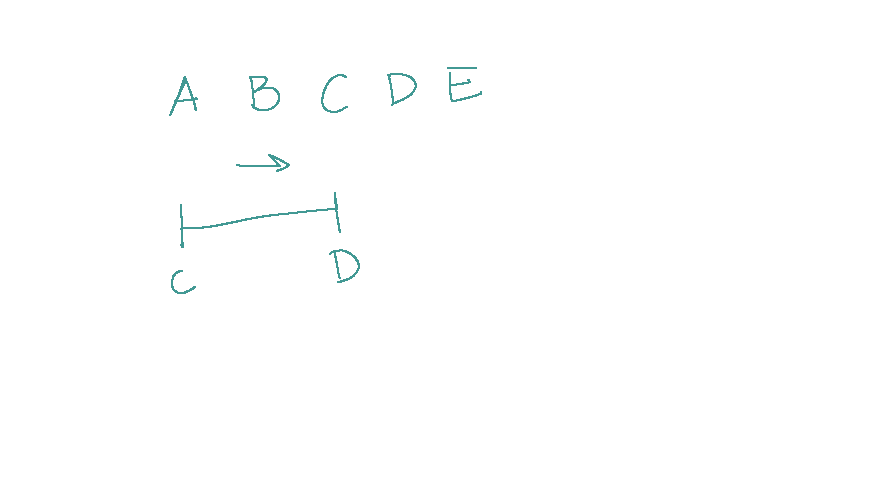 A B C D E
C D